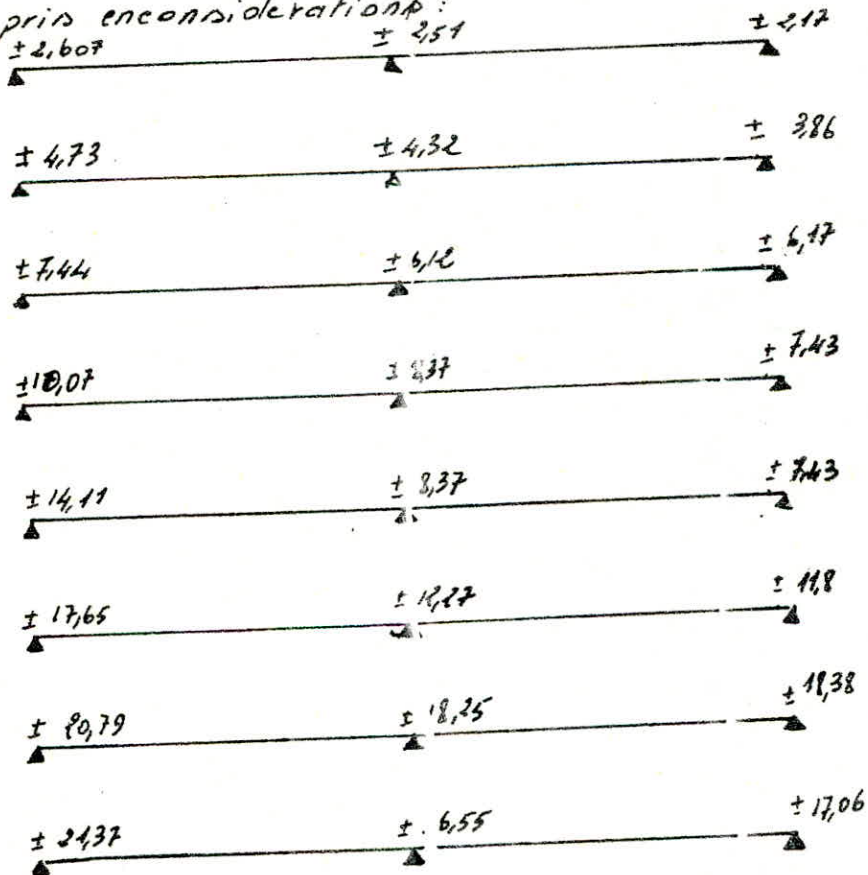 pris enconsiderations :
± 2,607 ± 2,51 ± 2,17
± 4,73 ± 4,32 ± 3,86
± 7,44 ± 6,12 ± 6,17
± 10,07 ± 8,37 ± 7,43
± 14,11 ± 8,37 ± 7,43
± 17,65 ± 12,27 ± 11,8
± 20,79 ± 18,25 ± 18,38
± 21,37 ± 6,55 ± 17,06